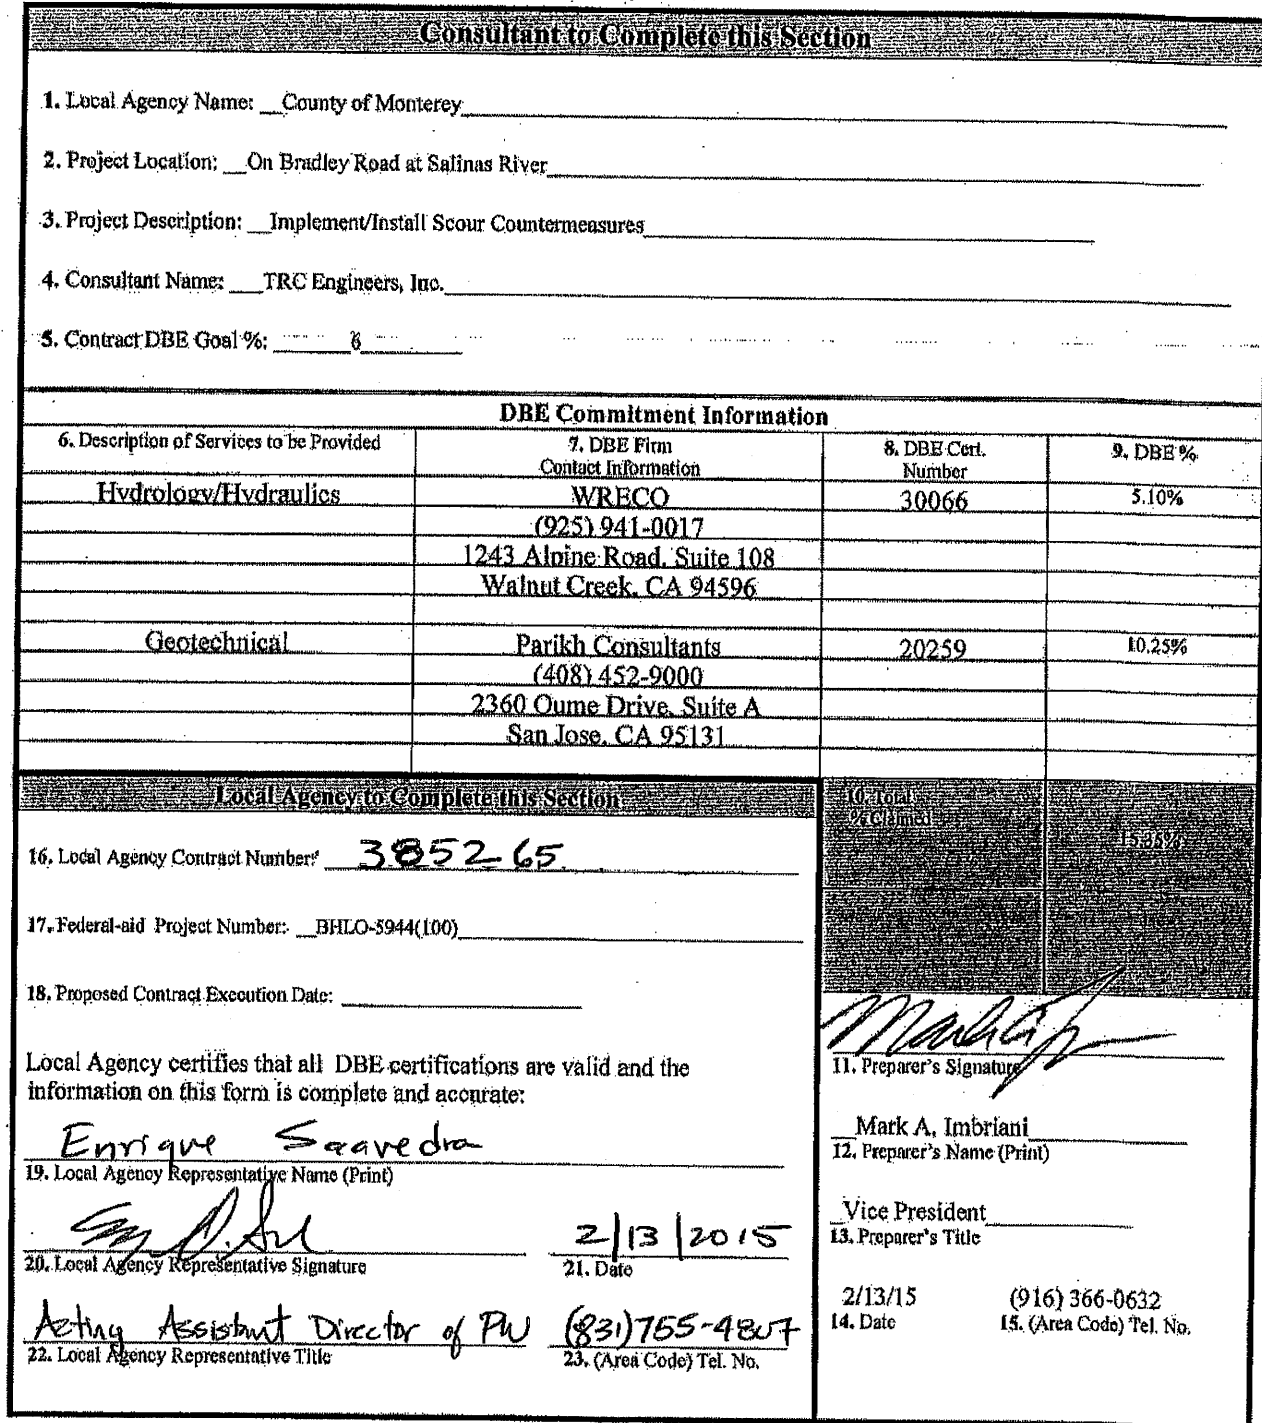 Consultant to Complete this Section
1. Local Agency Name: County of Monterey
2. Project Location: On Bradley Road at Salinas River
3. Project Description: Implement/Install Scour Countermeasures
4. Consultant Name: TRC Engineers, Inc.
5. Contract DBE Goal %: 6
DBE Commitment Information
6. Description of Services to be Provided
7. DBE Firm Contact Information
8. DBE Cert. Number
9. DBE %
Hydrology/Hydraulics WRECO 30066 5.10%
(925) 941-0017
1243 Alpine Road, Suite 108
Walnut Creek, CA 94596
Geotechnical Parikh Consultants 20259 10.25%
(408) 452-9000
2360 Qume Drive, Suite A
San Jose, CA 95131
Local Agency to Complete this Section
10. Total
% Claimed
15.35%
16. Local Agency Contract Number: 385265
17. Federal-aid Project Number: BHLO-5944(100)
18. Proposed Contract Execution Date:
Local Agency certifies that all DBE certifications are valid and the
information on this form is complete and accurate:
Enrique Saavedra
19. Local Agency Representative Name (Print)
20. Local Agency Representative Signature
2/13/2015
21. Date
Acting Assistant Director of PW
22. Local Agency Representative Title
(831)755-4807
23. (Area Code) Tel. No.
11. Preparer's Signature
Mark A. Imbriani
12. Preparer's Name (Print)
Vice President
13. Preparer's Title
2/13/15
14. Date
(916) 366-0632
15. (Area Code) Tel. No.